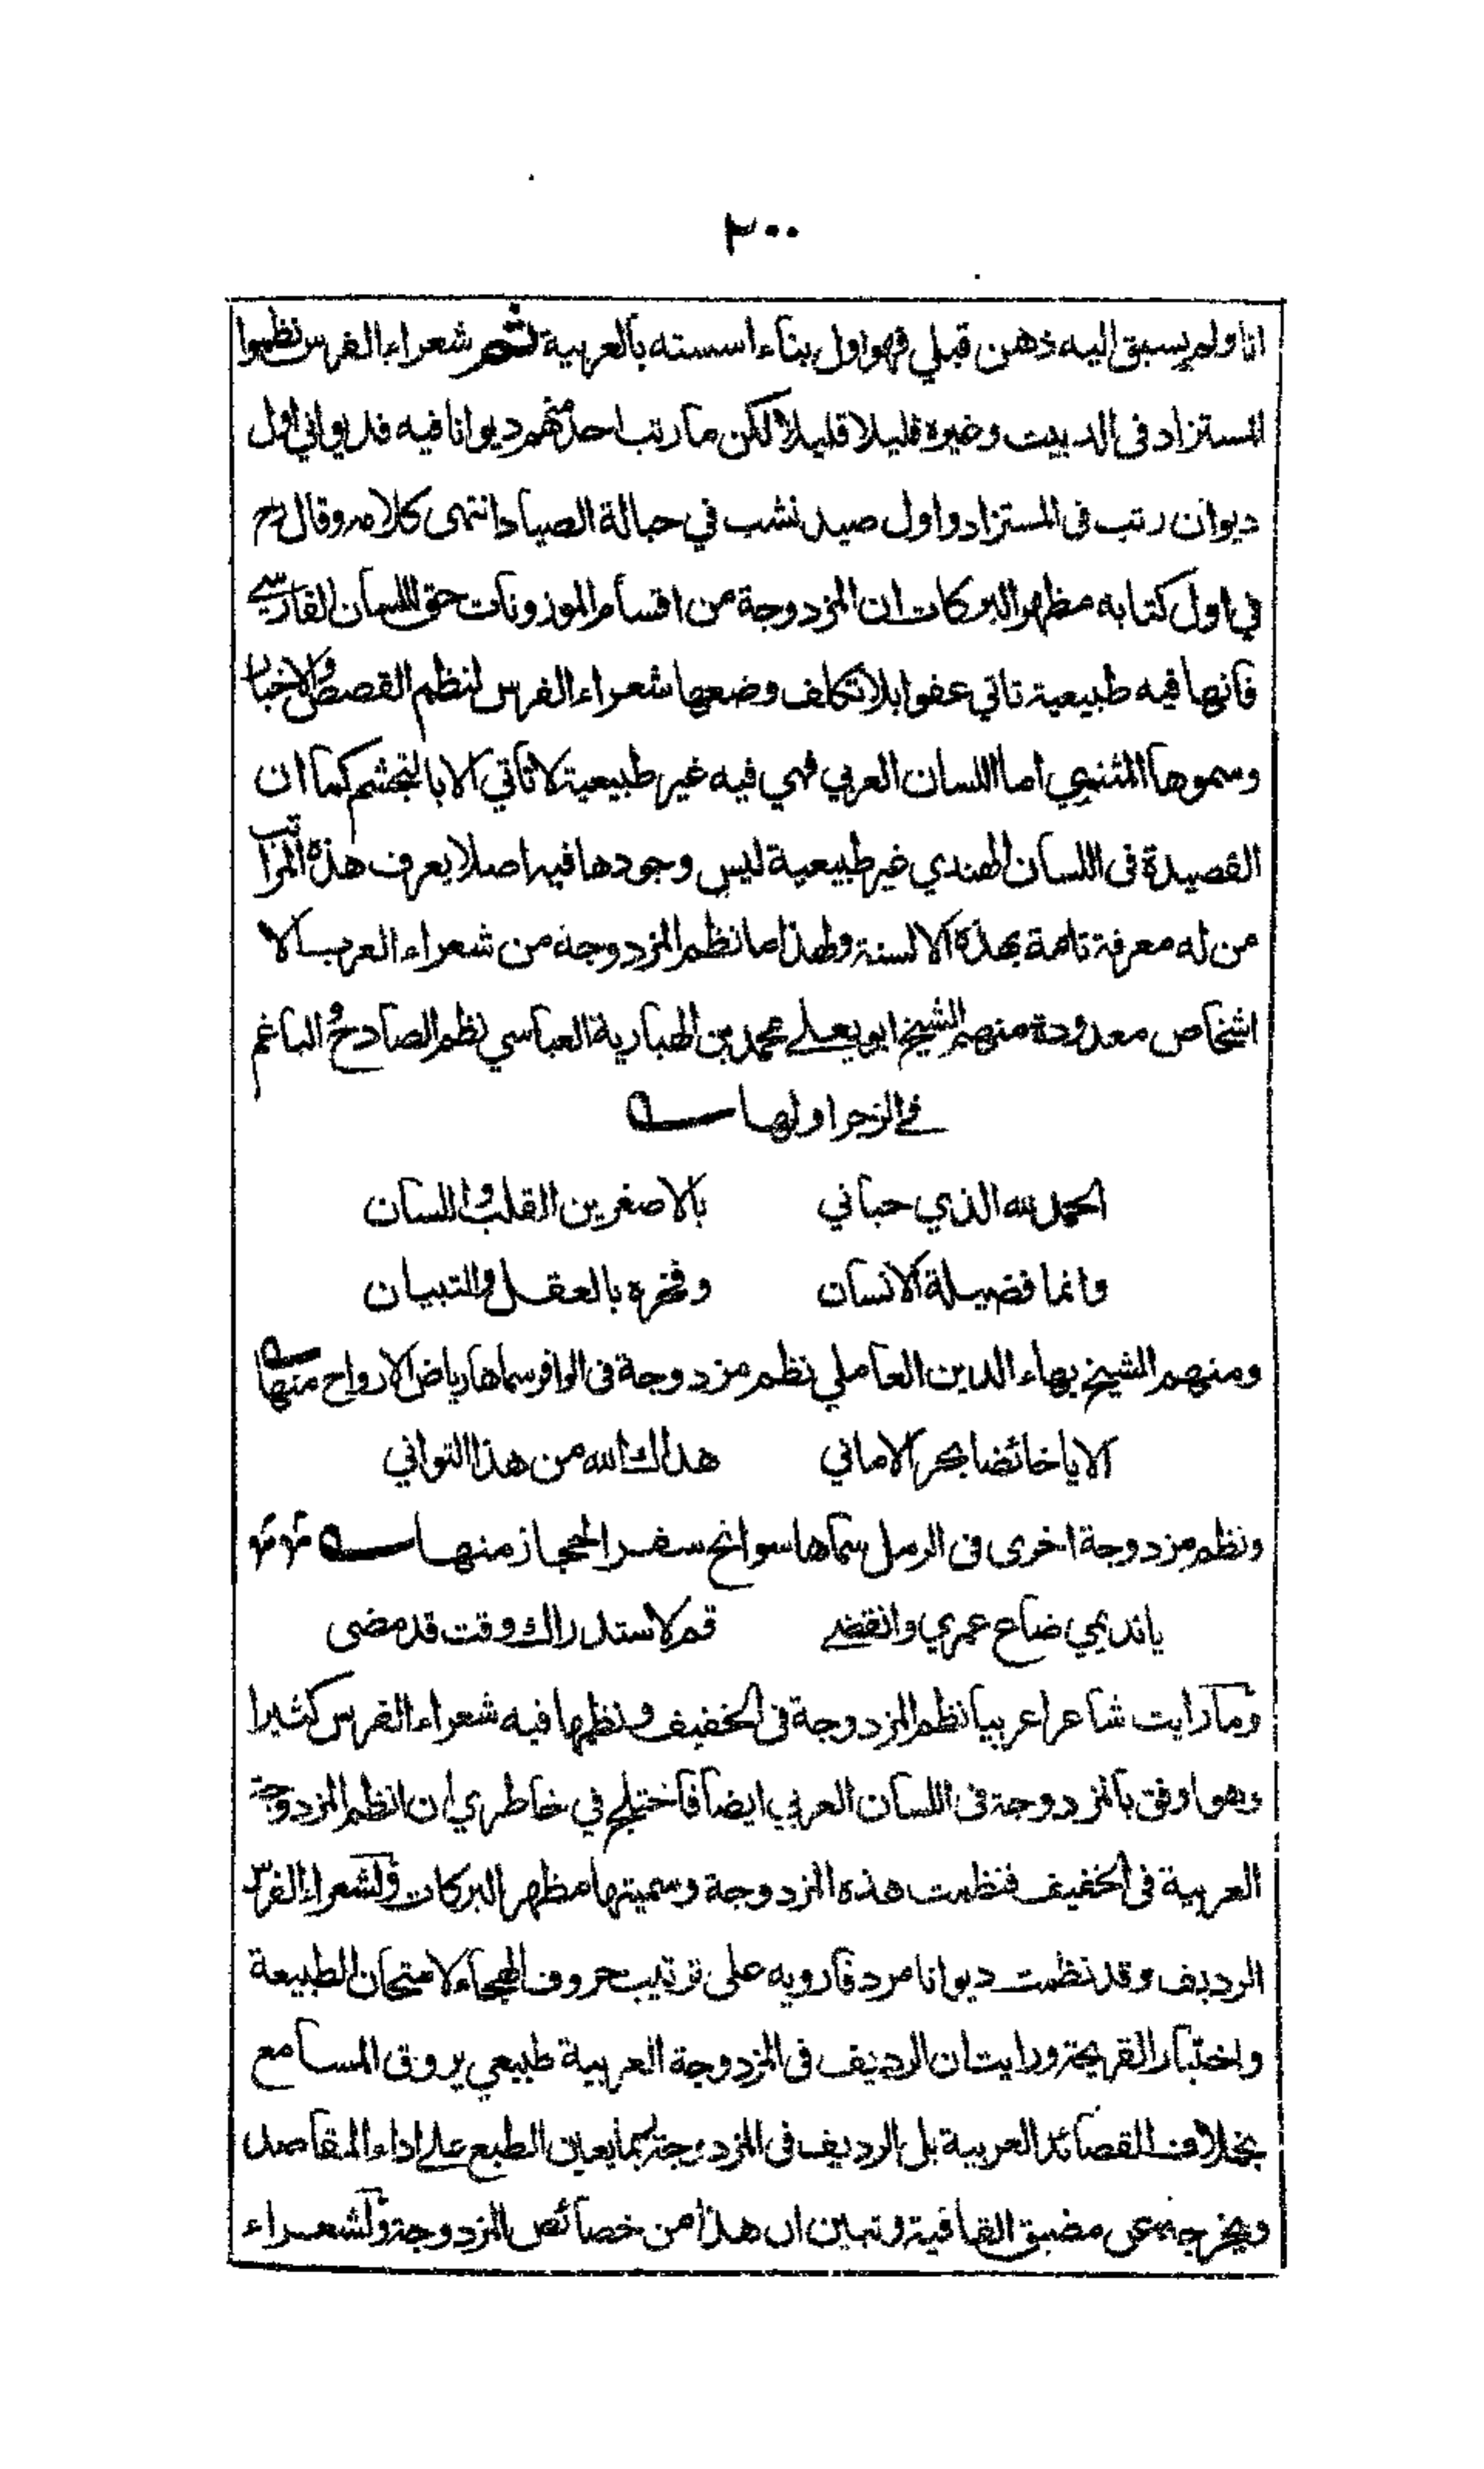 ٣٠٠
انا ولم يسبق اليه ذهن قبلي فهو اول بناء اسسته بالعربية ثم شعراء الفرس نظموا
المستزاد فى الدبيت وغيره قليلا قليلا لكن ما رتب احد منهم ديوانا فيه فديواني اول
ديوان رتب فى المستزاد واول صيد نشب في حبالة الصياد انتهى كلامه وقال رح
في اول كتابه مظهر البركات ان المزدوجة من اقسام الموزونات حق اللسان الفارسي
فانها فيه طبيعية تاتي عفوا بلا تكلف وضعها شعراء الفرس لنظم القصص والاخبار
وسموها المثنوي اما اللسان العربي فهي فيه غير طبيعية لا تاتي الا بالتجشم كما ان
القصيدة فى اللسان الهندي غير طبيعية ليس وجودها فيه اصلا يعرف هذه المراتب
من له معرفة تامة بهذه الالسنة ولهذا ما نظم المزدوجة من شعراء العرب الا
اشخاص معدودة منهم الشيخ ابو يعلى محمد بن الهبارية العباسي نظم الصادح والباغم
في الرجز اولها
الحمد لله الذي حباني بالاصغرين القلب واللسان
وانما فضيلة الانسان وفخره بالعقل والتبيان
ومنهم الشيخ بهاء الدين العاملي نظم مزدوجة فى الوافر سماها رياض الارواح منها
الا يا خائضا بحر الاماني هداك الله من هذا التواني
ونظم مزدوجة اخرى فى الرمل سماها سوانح سفر الحجاز منها
يا نديمي ضاع عمري وانقضى قم لاستدراك وقت قد مضى
وما رايت شاعرا عربيا نظم المزدوجة فى الخفيف ونظمها فيه شعراء الفرس كثيرا
وهو اوفق بالمزدوجة فى اللسان العربي ايضا فاختلج في خاطري ان انظم المزدوجة
العربية فى الخفيف فنظمت هذه المزدوجة وسميتها مظهر البركات ولشعراء الفرس
الرديف وقد نظمت ديوانا مردفا رويه على ترتيب حروف الهجاء لامتحان الطبيعة
واختبار القريحة ورايت ان الرديف فى المزدوجة العربية طبيعي يروق المسامع
بخلاف القصائد العربية بل الرديف فى المزدوجة ربما يعين الطبع على اداء المقاصد
ويخرجه عن مضيق القافية وتبين ان هذا من خصائص المزدوجة ولشعراء